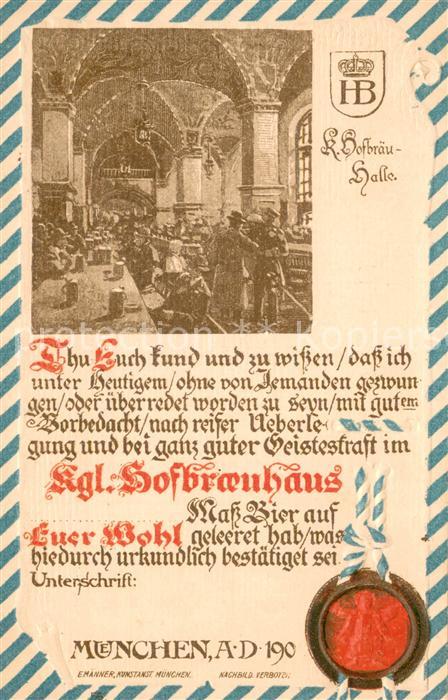 HB
K. Hofbräu-
Halle.
Thu Euch kund und zu wißen/daß ich
unter Heutigem/ohne von Jemanden gezwun-
gen/oder überredet worden zu seyn/mit gutem
Vorbedacht/nach reifer Ueberle-
gung und bei ganz guter Geisteskraft im
Kgl. Hofbræuhaus
Maß Bier auf
Euer Wohl geleeret hab/was
hiedurch urkundlich bestätiget sei.
Unterschrift:
MUENCHEN, A·D·190
E. MÄNNER, KUNSTANST. MÜNCHEN. NACHBILD. VERBOTEN